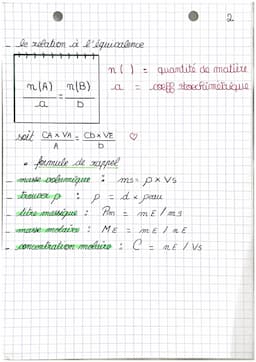 2
- la relation à l'équivalence
n(A) / a = n(B) / b
n( ) = quantité de matière
a = coeff stoechiométrique
soit CA × VA / A = CB × VE / b ♡
• formule de rappel
- masse volumique : ms = ρ × Vs
- trouver ρ : ρ = d × ρeau
- titre massique : Pm = mE / ms
- masse molaire : ME = mE / nE
- concentration molaire : C = nE / Vs